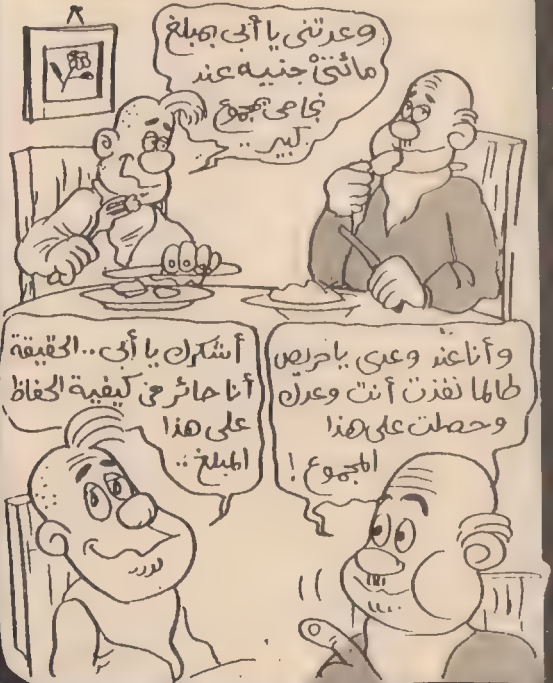 وعدتنى يا أبى بمبلغ
مائتىْ جنيه عند
نجاحى بمجموع
كبير..
وأنا عند وعدى يا حريص
طالما نفذت أنت وعدك
وحصلت على هذا
المجموع !
أشكرك يا أبى .. الحقيقة
أنا حائر فى كيفية الحفاظ
على هذا
المبلغ ..